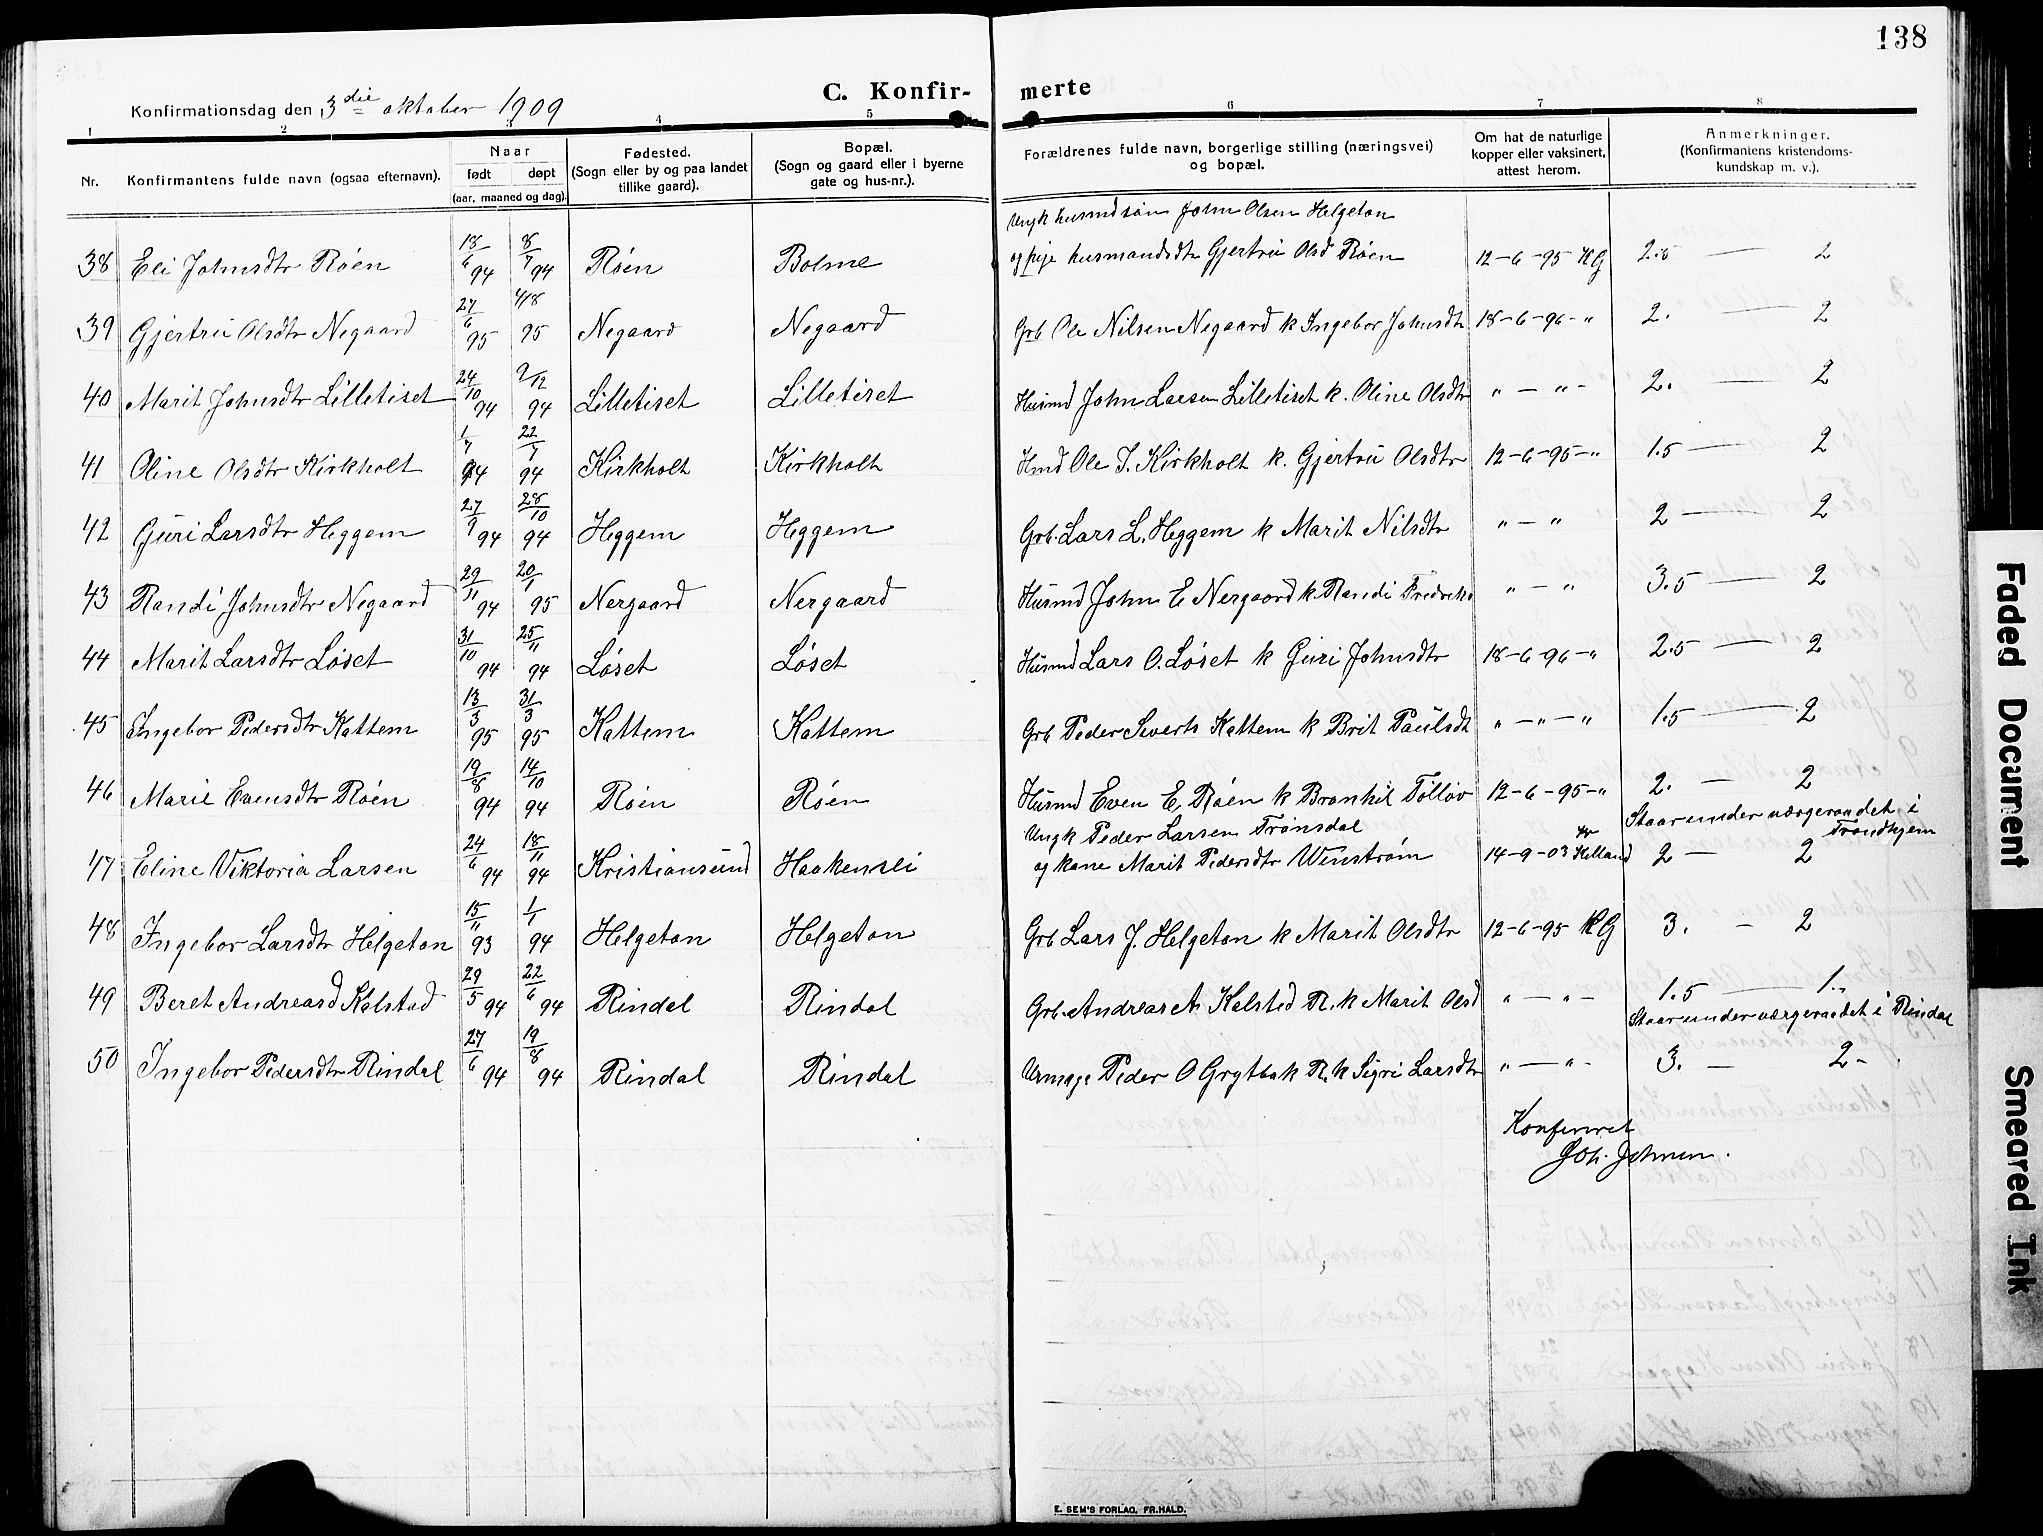 138
C. Konfir-
merte
Konfirmationsdag den 3die oktober 1909
1 2 3 4 5 6 7 8
Nr.
Konfirmantens fulde navn (ogsaa efternavn).
Naar
født
døpt
(aar, maaned og dag).
Fødested.
(Sogn eller by og paa landet
tillike gaard).
Bopæl.
(Sogn og gaard eller i byerne
gate og hus-nr.).
Forældrenes fulde navn, borgerlige stilling (næringsvei)
og bopæl.
Om hat de naturlige
kopper eller vaksinert,
attest herom.
Anmerkninger.
(Konfirmantens kristendoms-
kundskap m. v.).
Ungk husmdsøn John Olsen Helgeton
38 Eli Johnsdtr Røen 18/6 94 8/7 94 Røen Bolme og pige husmandsdtr Gjertru Olsd Røen 12-6-95 HG 2.5 — 2
39 Gjertru Olsdtr Negaard 27/6 95 4/8 95 Negaard Negaard Grb Ole Nilsen Negaard k Ingebor Johnsdtr 18-6-96-" 2. — 2
40 Marit Johnsdtr Lilletiset 24/10 94 2/12 94 Lilletiset Lilletiset Husmd John Larsen Lilletiset k. Oline Olsdtr " — " - 2. — 2
41 Oline Olsdtr Kirkholt 1/7 94 22/7 94 Kirkholt Kirkholt Hmd Ole I. Kirkholt k. Gjertru Olsdtr 12-6-95-" 1.5 — 2
42 Guri Larsdtr Heggem 27/9 94 28/10 94 Heggem Heggem Grb. Lars L. Heggem k Marit Nilsdtr " — " 2 — 2
43 Randi Johnsdtr Negaard 29/11 94 20/1 95 Nergaard Nergaard Husmd John E Nergaard k Randi Fredriksd " — " 3.5 — 2
44 Marit Larsdtr Løset 31/10 94 25/11 94 Løset Løset Husmd Lars O. Løset k Guri Johnsdtr 18-6-96-" 2.5 — 2
45 Ingebor Pedersdtr Kattem 13/3 95 31/3 95 Kattem Kattem Grb Peder Siverts Kattem k Brit Paulsdt " — " — " 1.5 — 2
46 Marie Evensdtr Røen 19/8 94 14/10 94 Røen Røen Husmd Even E. Røen k Bronhil Tollov 12-6-95-" 2. — 2
Ungk Peder Larsen Trønsdal Staar under værgeraadet i Trondhjem
47 Eline Viktoria Larsen 24/6 94 18/11 94 Kristiansund Haakensli og kone Marit Pedersdtr Winstrøm 14-9-03 Kielland 2 — 2
48 Ingebor Larsdtr Helgeton 15/11 93 1/1 94 Helgeton Helgeton Grb Lars J. Helgeton k Marit Olsdtr 12-6-95 HG 3. - 2
49 Beret Andreasd Kalstad 29/5 94 22/6 94 Rindal Rindal Grb. Andreas A. Kalstad R. k Marit Olsd " — " — 1.5 — 1.
Staar under værgeraadet i Rindal
50 Ingebor Pedersdtr Rindal 27/6 94 19/8 94 Rindal Rindal Urmage Peder O Grytbak R. k Sigri Larsdtr " — " - 3. — 2 -
Konfereret
Joh. Johnsen.
E. SEM'S FORLAG, FR.HALD.
Faded Document
Smeared Ink